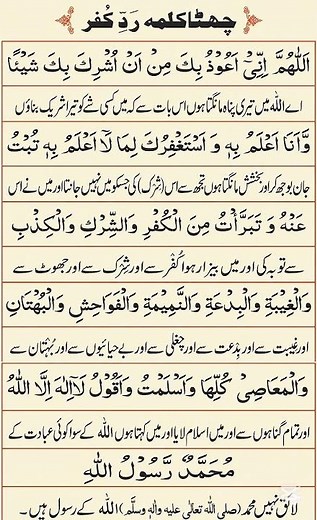 چھٹا کلمہ رَدِّ کُفر
اَللّٰهُمَّ اِنِّیْٓ اَعُوْذُ بِكَ مِنْ اَنْ اُشْرِكَ بِكَ شَیْـًٔا
اے اللہ میں تیری پناہ مانگتا ہوں اس بات سے کہ میں کسی شے کو تیرا شریک بناؤں
وَّاَنَا اَعْلَمُ بِهٖ وَ اَسْتَغْفِرُكَ لِمَا لَآ اَعْلَمُ بِهٖ تُبْتُ
جان بوجھ کر اور بخشش مانگتا ہوں تجھ سے اس (شِرک) کی جسکو میں نہیں جانتا اور میں نے اس
عَنْهُ وَ تَبَرَّأْتُ مِنَ الْكُفْرِ وَالشِّرْكِ وَالْكِذْبِ
سے توبہ کی اور میں بیزار ہوا کُفر سے اور شِرک سے اور جھوٹ سے
وَالْغِیْبَةِ وَالْبِدْعَةِ وَالنَّمِیْمَةِ وَالْفَوَاحِشِ وَالْبُهْتَانِ
اور غیبت سے اور بِدْعت سے اور چغلی سے اور بے حیائیوں سے اور بُہتان سے
وَالْمَعَاصِیْ كُلِّهَا وَاَسْلَمْتُ وَاَقُوْلُ لَآاِلٰهَ اِلَّا اللّٰهُ
اور تمام گناہوں سے اور میں اسلام لایا اور میں کہتا ہوں اللہ کے سوا کوئی عبادت کے
مُحَمَّدٌ رَّسُوْلُ اللّٰهِ
لائق نہیں محمد (صلی اللہ تعالٰی علیہ واٰلہٖ وسلّم) اللہ کے رسول ہیں۔